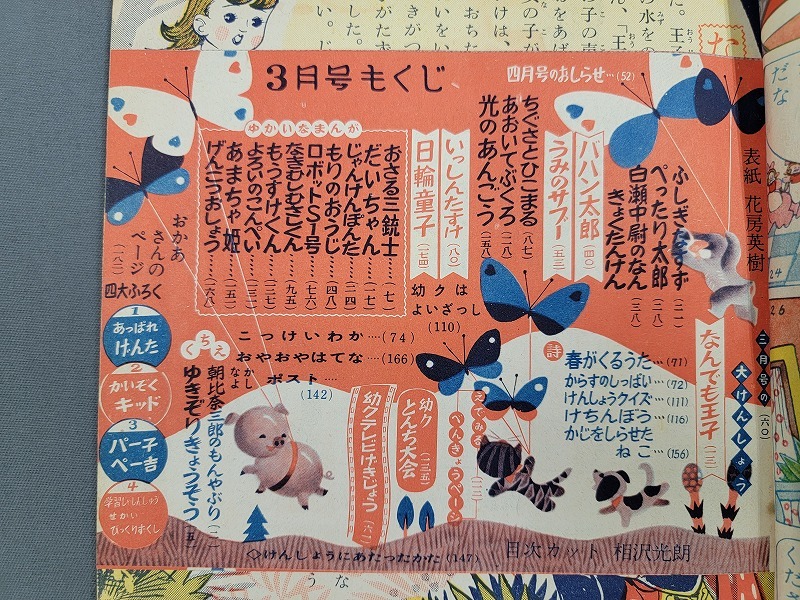 3月号もくじ
四月号のおしらせ…(52)
表紙 花房英樹
三月号の
大けんしょう
(六〇)
なんでも王子
ぺったり太郎
白瀬中尉のなん
きょくたんけん
ババン太郎
うみのサブー
ちぐさとひこまる
あおいてぶくろ
光のあんごう
いっしんたすけ (八〇)
日輪童子 (一七四)
ゆかいなまんが
おさる三銃士
だいちゃん
じゃんけんぽんた
もりのおうじ
ロボットS1号
なきむしむさしくん
もうすけくん
よろいのこんぺい
あまちゃ姫
げんこつおしょう
おかあ
さんの
ページ
四大ふろく
1
あっぱれ
げんた
2
かいぞく
キッド
3
パー子
ペー吉
4
せかい
びっくりずくし
幼クは
よいざっし
(110)
こっけいわか…(74)
おやおやはてな…(166)
なかよし
ポスト…
(142)
くちえ
朝比奈三郎のもんやぶり
ゆきぞりきょうそう
幼クテレビげきじょう
幼ク
とんち大会
えでみる
べんきょうページ
詩
春がくるうた…(71)
からすのしっぱい…(72)
けんしょうクイズ…(111)
けちんぼう…(116)
かじをしらせた
ねこ…(156)
◇けんしょうにあたったかた(147)
目次カット 相沢光朗